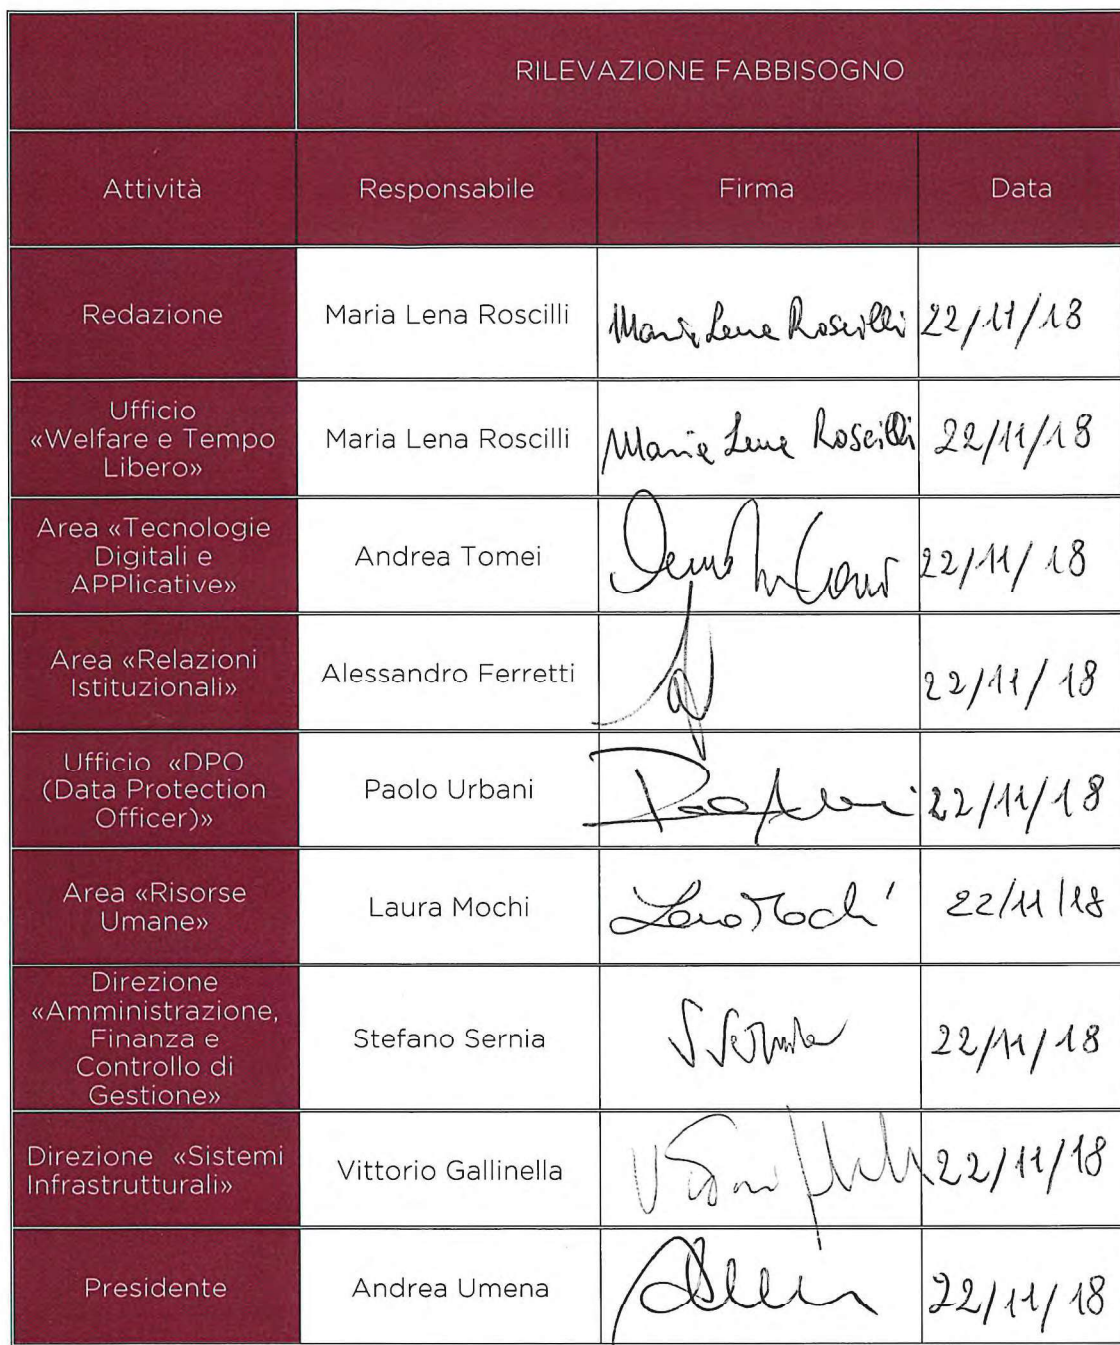 RILEVAZIONE FABBISOGNO
Attività Responsabile Firma Data
Redazione Maria Lena Roscilli Maria Lena Roscilli 22/11/18
Ufficio
«Welfare e Tempo
Libero»
Maria Lena Roscilli Maria Lena Roscilli 22/11/18
Area «Tecnologie
Digitali e
APPlicative»
Andrea Tomei 22/11/18
Area «Relazioni
Istituzionali»
Alessandro Ferretti 22/11/18
Ufficio «DPO
(Data Protection
Officer)»
Paolo Urbani 22/11/18
Area «Risorse
Umane»
Laura Mochi Laura Mochi 22/11/18
Direzione
«Amministrazione,
Finanza e
Controllo di
Gestione»
Stefano Sernia S Sernia 22/11/18
Direzione «Sistemi
Infrastrutturali»
Vittorio Gallinella 22/11/18
Presidente Andrea Umena 22/11/18